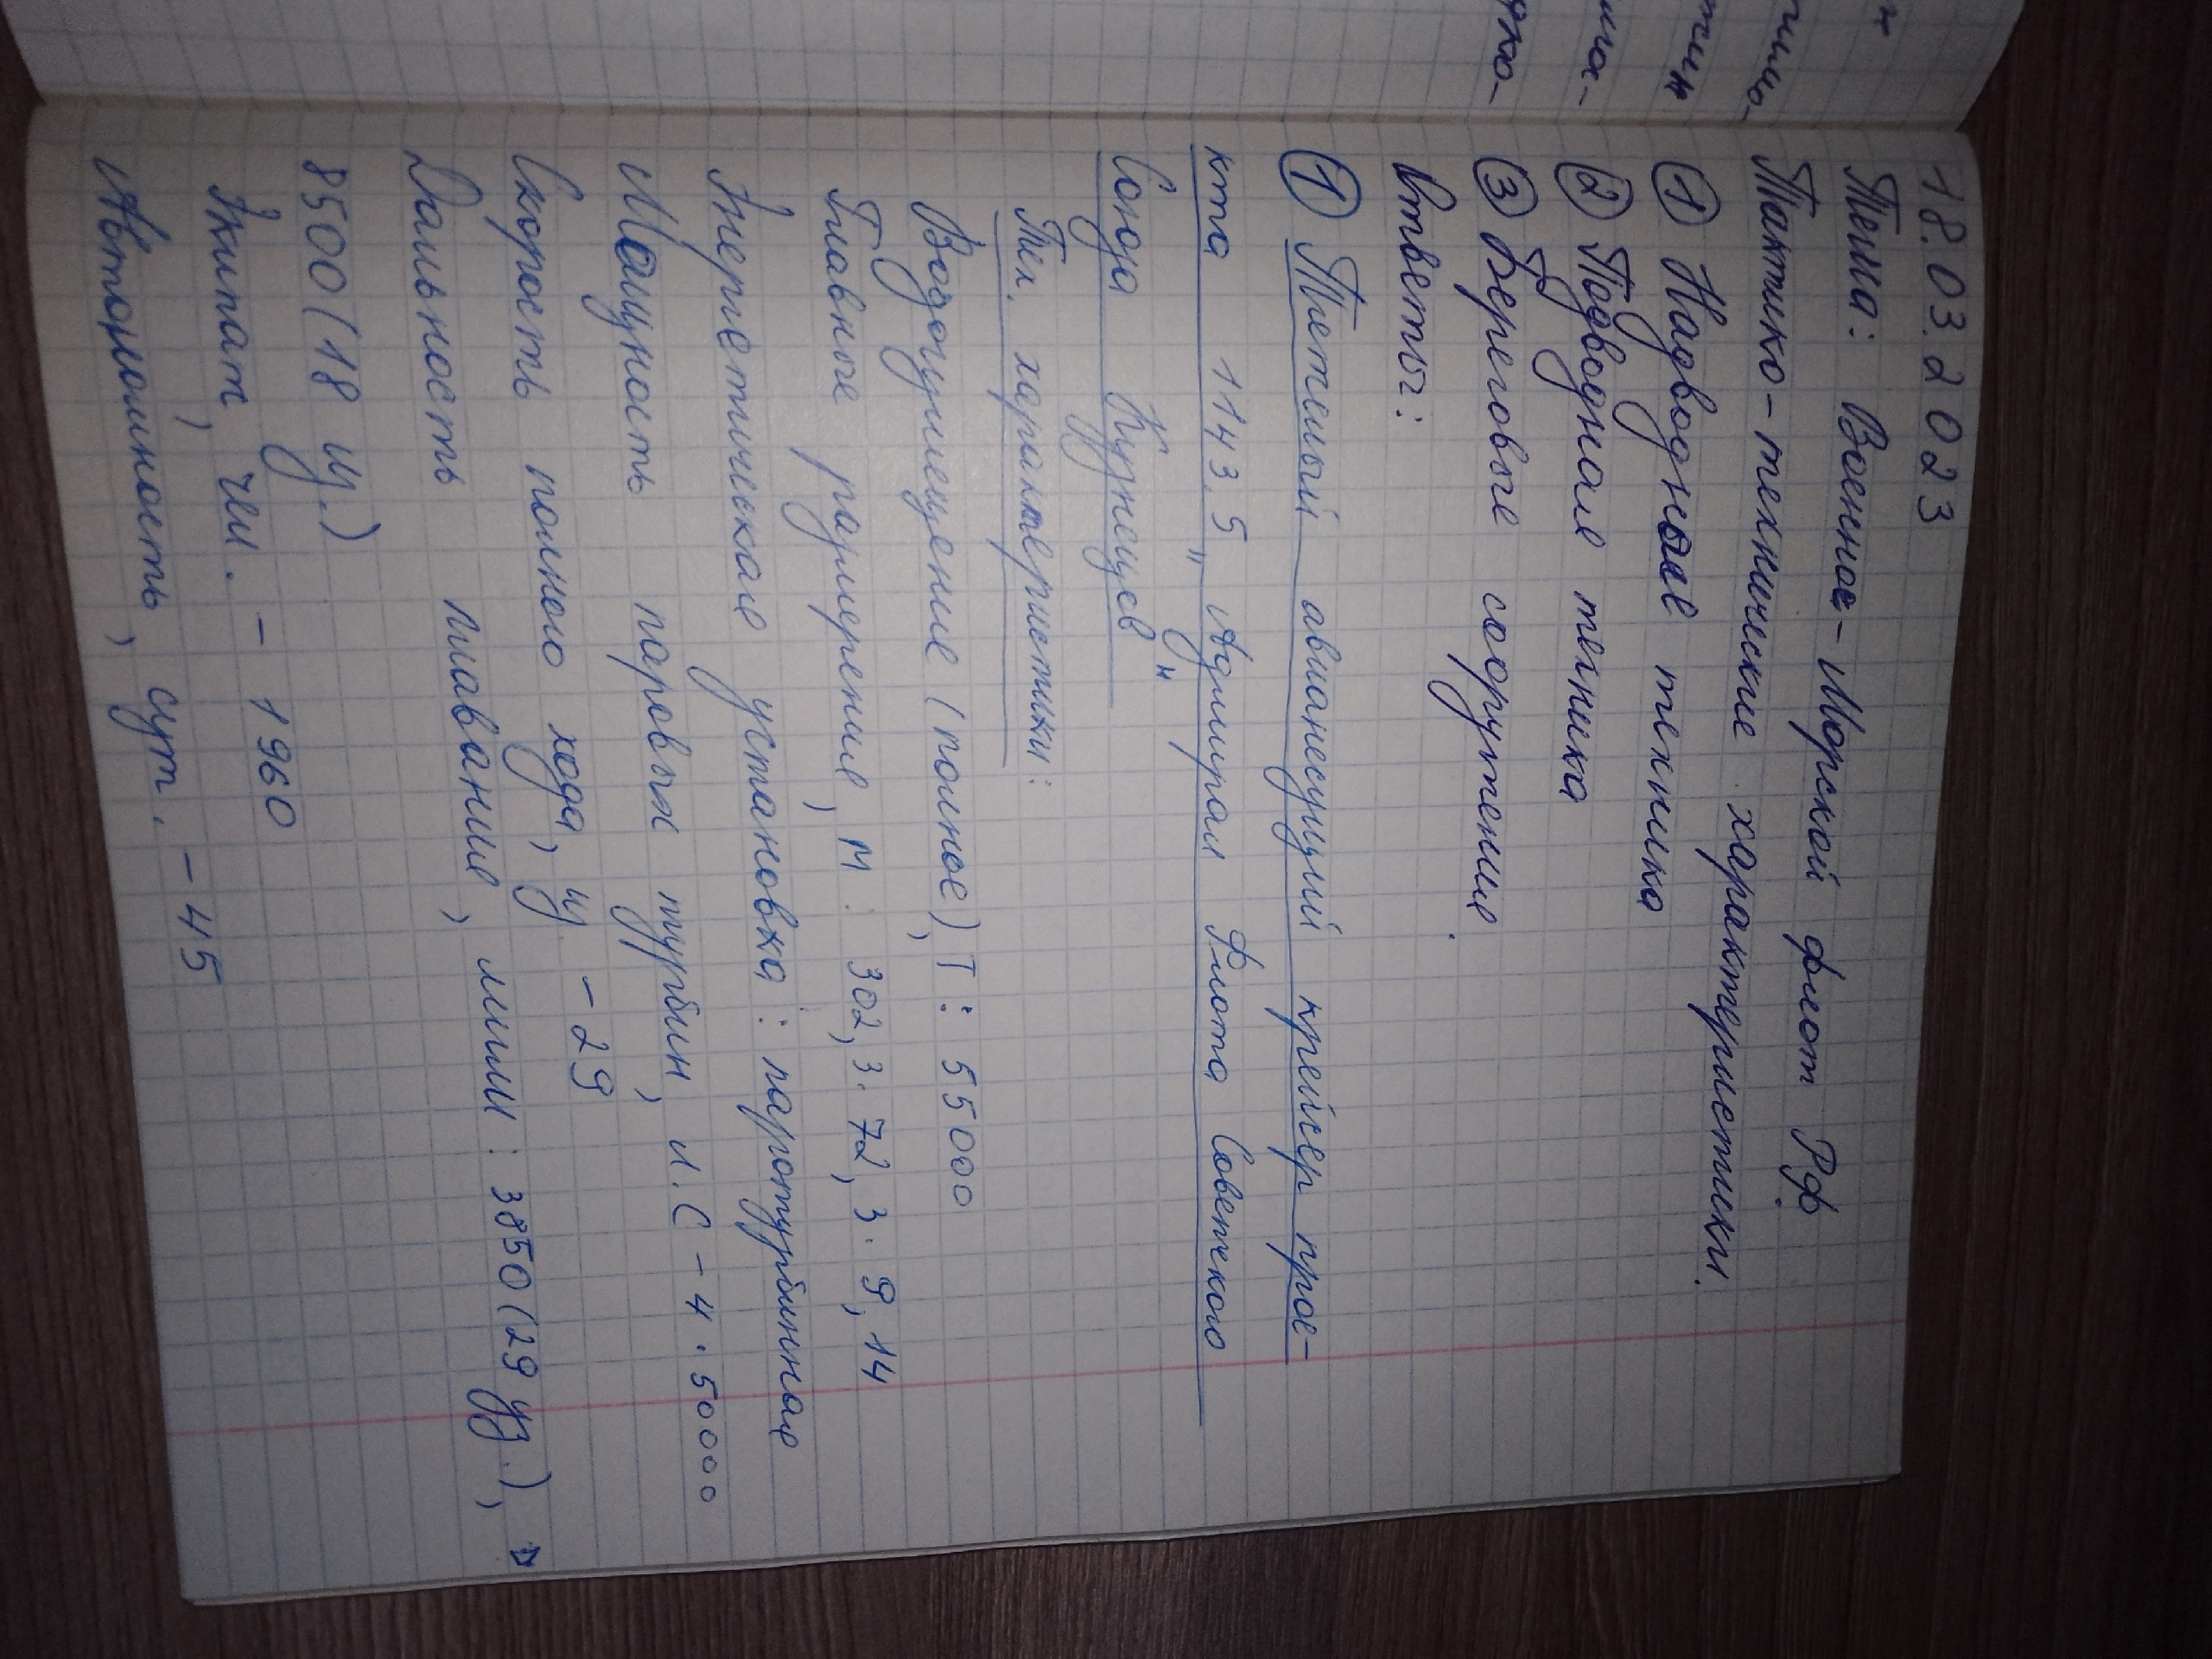 18.03.2023
Тема: Военное-Морской флот РФ.
Тактико-технические характеристики.
① Надводные техника
② Подводная техника
③ Береговые сооружение.
Ответы:
① Тяжелый авианесущий крейсер прое-
кта 1143.5 „Адмирал Флота Советского
Союза Кузнецов"
Тех. характеристики:
Водоизмещение (полное), Т: 55000
Главные размерение, м: 302,3. 72,3. 9,14
Энергетическая установка: паротурбинная
Мощность паровых турбин, л.С - 4·50000
Скорость полного хода, уз. - 29
Дальность плавание, мили: 3850 (29 уз.),
8500 (18 уз.)
Экипаж, чел. - 1960
Автономность, сут. - 45